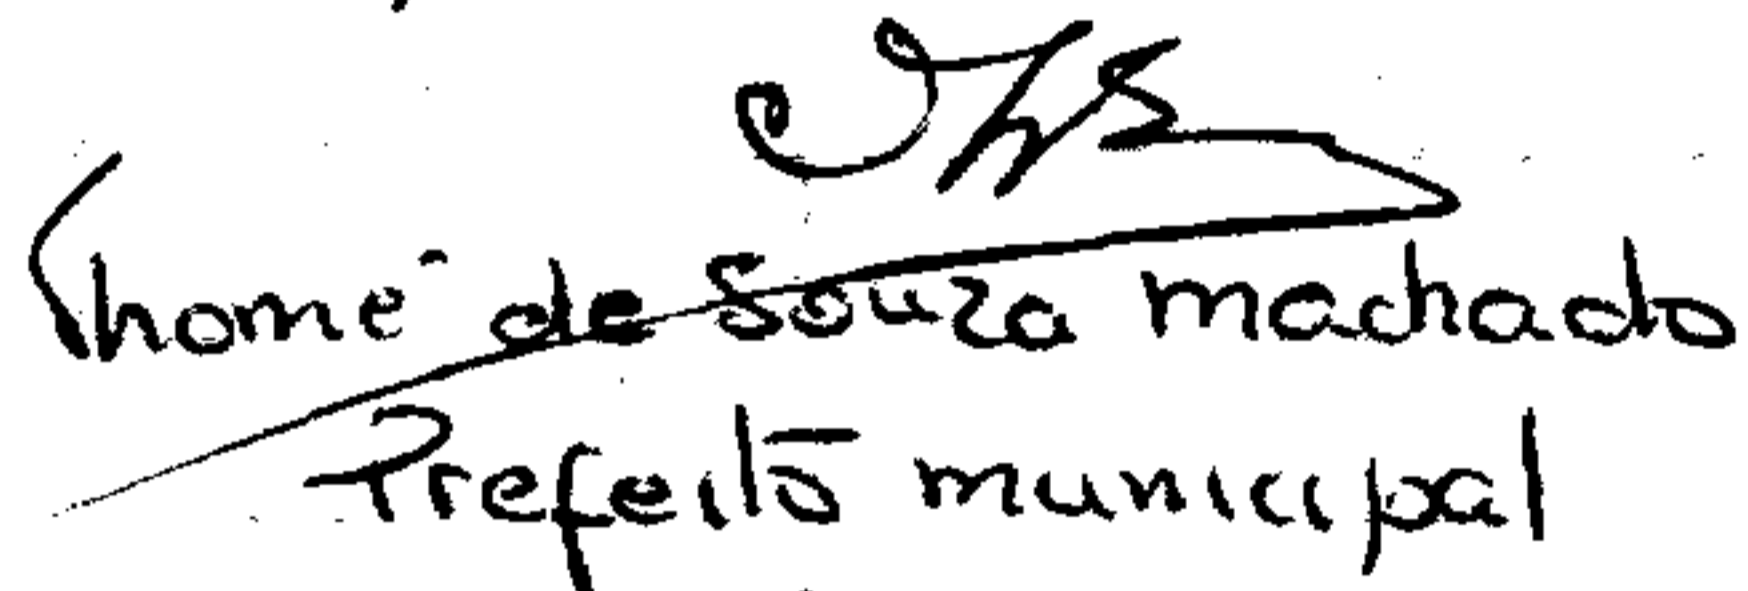 Thomé de Souza Machado
Prefeito municipal